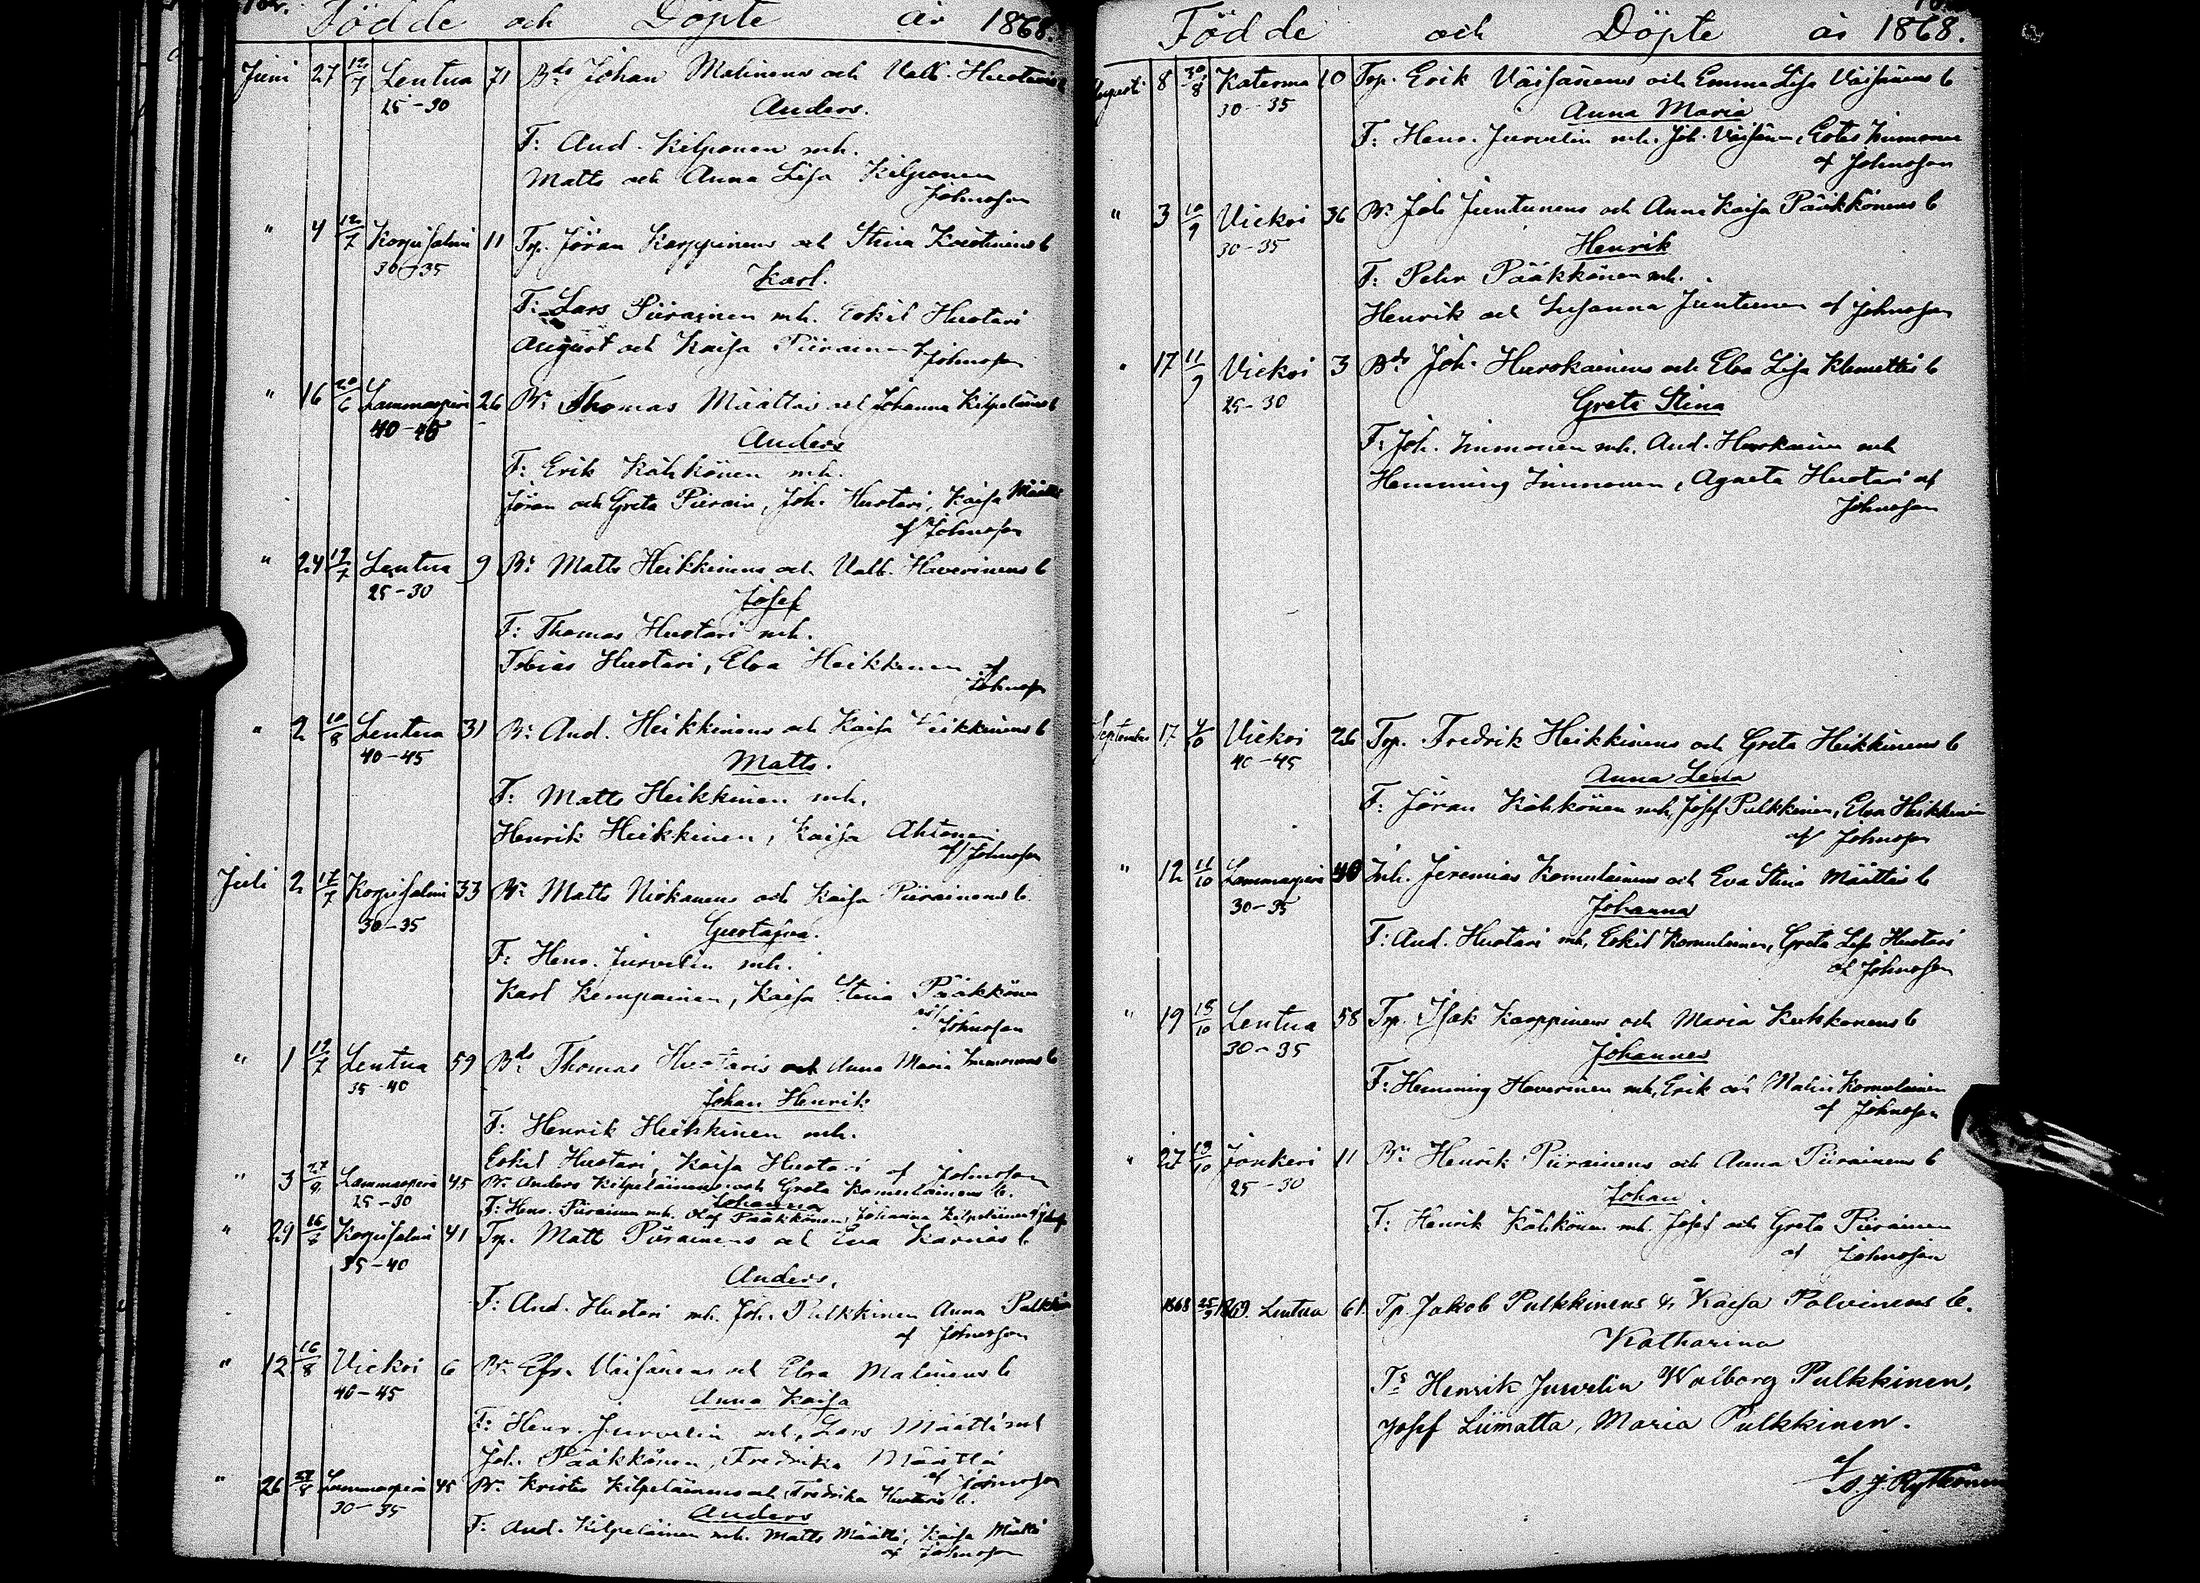 Födde och Döpte år 1868.
Juni 27 12/7 Lentua 71 Bds Johan Malinens och Valb. Huotaris
25-30 Anders.
F: And. Kilponen mh.
Matts och Anna Lisa Kilponen
Johnsson
" 4 12/7 Korpisalmi 11 Tp. Jöran Karppinens och Stina b
30-35 Karl.
F: Lars Piirainen mh. Eskil Huotari
August och Kaisa Piirainen af Johnsson
" 16 20/6 Lammasperä 26 Bn Thomas Määttäs och Johanna Kilpeläinens b
40-45 Anders
F: Erik Kähkönen mh.
Jöran och Greta Piirain, Joh. Huotari, Kaisa Määttä
af Johnsson
" 24 12/7 Lentua 9 Bn Matts Heikkinens och Valb. Haverinens b
25-30 Josef
F: Thomas Huotari mh.
Tobias Huotari, Elsa Heikkinen af
Johnsson
" 2 10/8 Lentua 31 Bn And. Heikkinens och Kaisa Heikkinens b
40-45 Matts.
F: Matts Heikkinen mh.
Henrik Heikkinen, Kaisa Ahtonen
af Johnsson
Juli 2 12/7 Korpisalmi 33 Bn Matts Niskanens och Kaisa Piirainens b
30-35 Gustafva.
F: Henr. Jurvelin mh.
Karl Kemppainen, Kaisa Stina Pääkkönen
af Johnsson
" 1 12/7 Lentua 59 Bds Thomas Huotaris och Anna Maria Immonens b
35-40 Johan Henrik
F: Henrik Heikkinen mh.
Eskil Huotari, Kaisa Huotari af Johnsson
" 3 27/9 Lammasperä 45 Bn Anders Kilpeläinens och Greta Komulainens b.
25-30 Johanna
F: Henr. Piirainen mh. Olof Pääkkönen, Johanna Kilpeläinen af Johnss
" 29 16/8 Korpisalmi 41 Tp. Matts Piirainens och Eva Karnas b.
35-40 Anders.
F: And. Huotari mh. Joh. Pulkkinen Anna Pulkkin
af Johnsson
" 12 16/8 Vieksi 6 Bn Efr. Väisänens och Elsa Malinens b
40-45 Anna Kaisa
F: Henr. Jurvelin mh, Lars Määttä mh
Joh. Pääkkönen, Fredrika Määttä
af Johnsson
" 26 Lammasperä 45 Bn Krister Kilpeläinens och Fredrika Huotaris b.
30-35 Anders
F: And. Kilpeläinen mh. Matts Määttä, Kaisa Määttä
af Johnsson
Födde och Döpte år 1868.
Augusti 8 30/8 Katerma 10 Tp. Erik Väisänens och Emma Lisa Väisänens b
30-35 Anna Maria
F: Henr. Jurvelin mh. Joh. Väisänen, Immonen
af Johnsson
" 3 10/9 Vieksi 36 Bn Joh Juntunens och Anna Kaisa Pääkkönens b
30-35 Henrik
F: Petter Pääkkönen mh.
Henrik och Susanna Juntunen af Johnsson
" 17 11/9 Vieksi 3 Bds Joh. Hurskainens och Elsa Lisa Klemettis b
25-30 Greta Stina
F: Joh. Immonen mh. And. Hurskainen mh
Hemming Immonen, Agneta Huotari af
Johnsson
September 17 4/10 Vieksi 26 Tp. Fredrik Heikkinens och Greta Heikkinens b
40-45 Anna Lena
F: Jöran Kähkönen mh, Josef Pulkkinen, Elsa Heikkinen
af Johnsson
" 12 11/10 Lammasperä 40 Inh. Jeremias Komulainens och Eva Stina Määttäs b
30-35 Johanna
F: And. Huotari mh, Eskil Komulainen, Greta Lisa Huotari
af Johnsson
" 19 18/10 Lentua 58 Tp. Isak Karppinens och Maria b
30-35 Johannes
F: Hemming Haverinen mh, Erik och Malin Komulainen
af Johnsson
" 27 13/10 Jonkeri 11 Bn Henrik Piirainens och Anna Piirainens b
25-30 Johan
F: Henrik Kähkönen mh. Josef och Greta Piirainen
af Johnsson
1868 25/3 1869. Lentua 61. Tp. Jakob Pulkkinens & Kaisa Polvinens b.
Katharina
Fs Henrik Juvelin Walborg Pulkkinen,
Josef Liimatta, Maria Pulkkinen.
af
A. J. Rytkönen